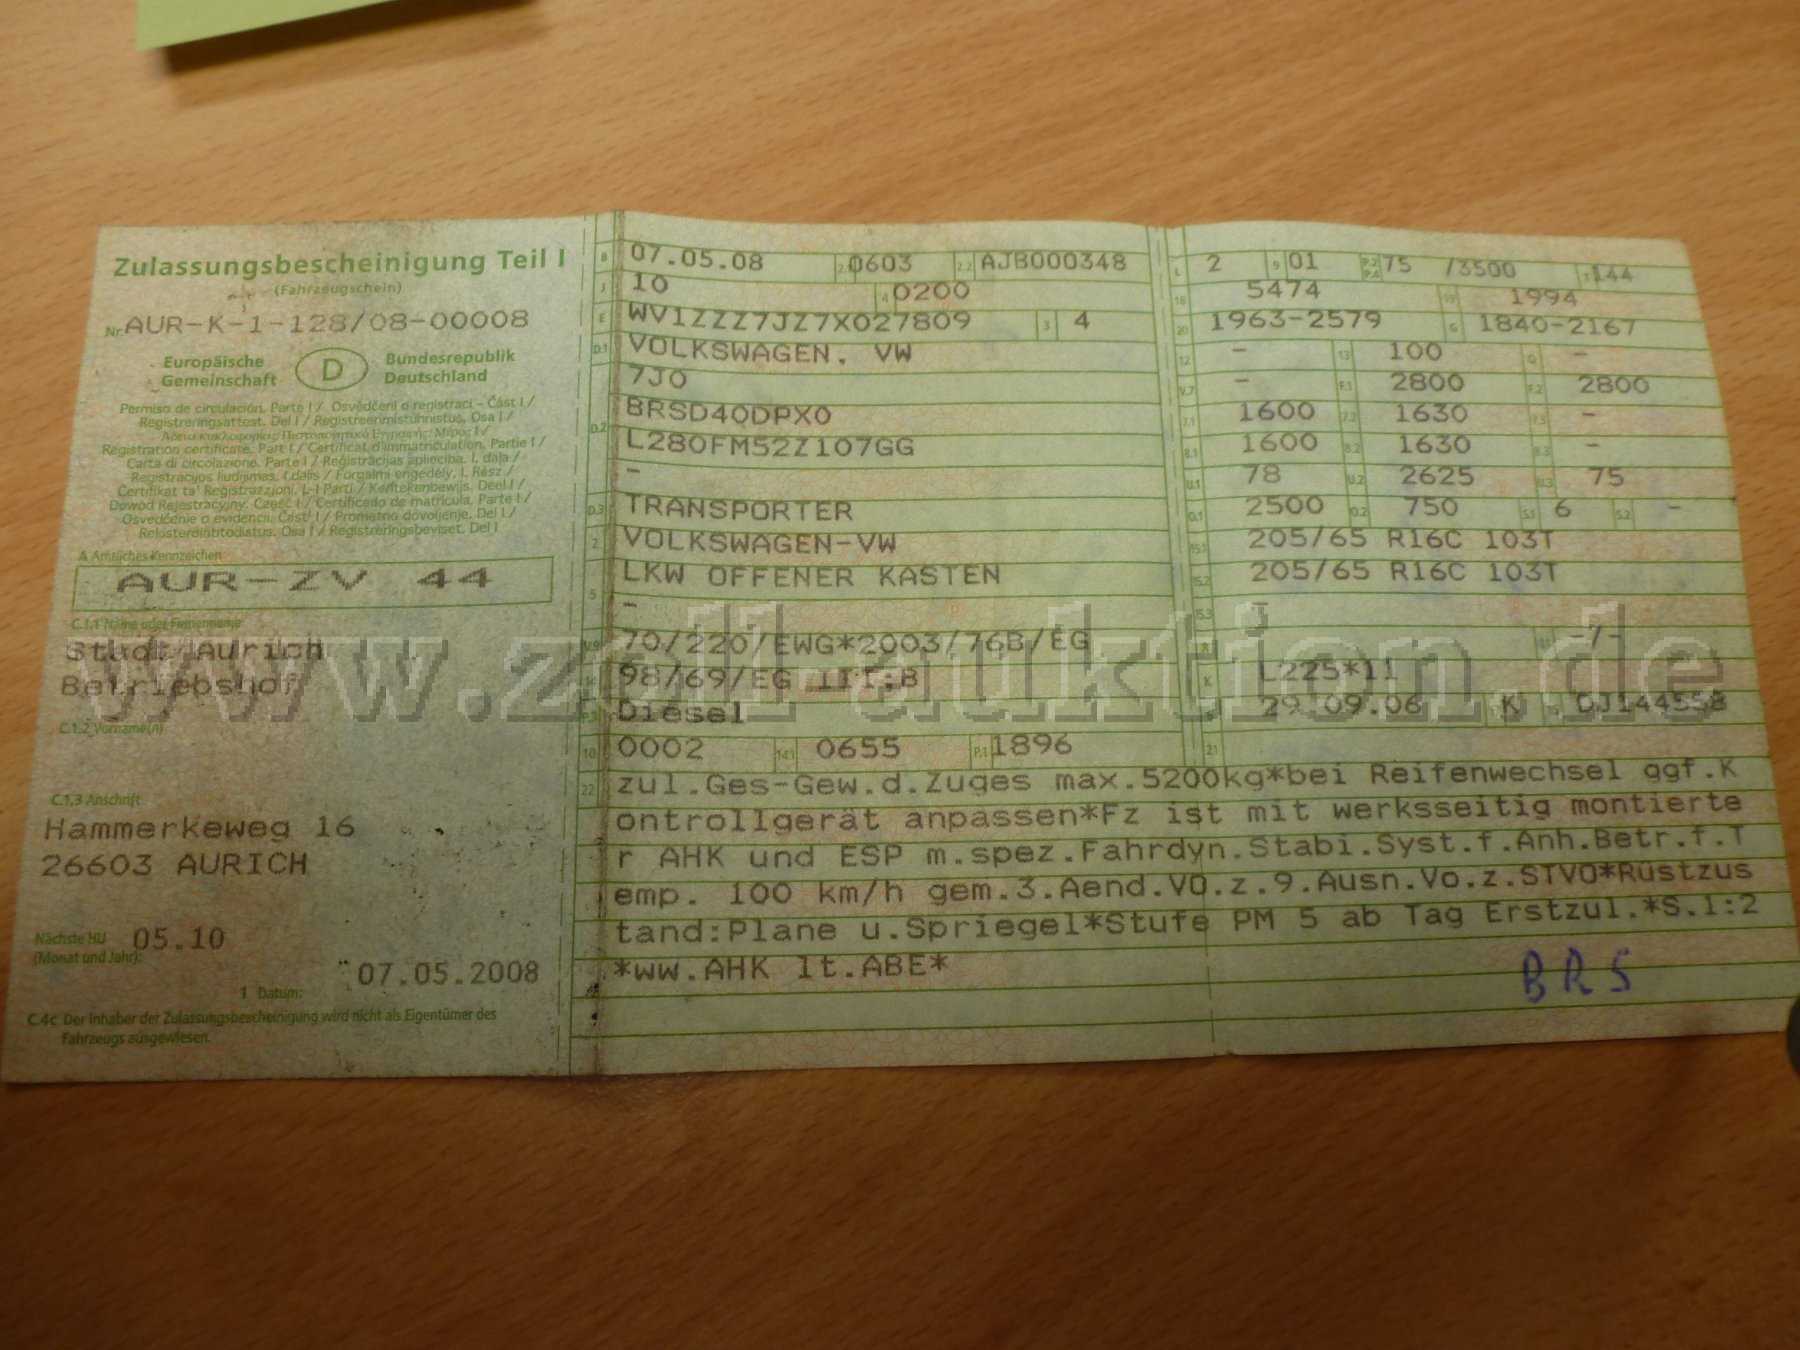 Zulassungsbescheinigung Teil I
(Fahrzeugschein)
Nr. AUR-K-1-128/08-00008
Europäische Gemeinschaft
D
Bundesrepublik Deutschland
Permiso de circulación. Parte I / Osvědčení o registraci - Část I /
Registreringsattest. Del I / Registreerimistunnistus. Osa I /
Registration certificate. Part I / Certificat d'immatriculation. Partie I /
Carta di circolazione. Parte I / Reģistrācijas apliecība. I. daļa /
Registracijos liudijimas. I dalis / Forgalmi engedély. I. Rész /
Ċertifikat ta' Reġistrazzjoni. L-I Parti / Kentekenbewijs. Deel I /
Dowód Rejestracyjny. Część I / Certificado de matrícula. Parte I /
Osvedčenie o evidencii. Časť I / Prometno dovoljenje. Del I /
Rekisteröintitodistus. Osa I / Registreringsbeviset. Del I
A Amtliches Kennzeichen
AUR-ZV 44
C.1.1 Name oder Firmenname
Stadt Aurich
Betriebshof
C.1.2 Vorname(n)
C.1.3 Anschrift
Hammerkeweg 16
26603 AURICH
Nächste HU (Monat und Jahr): 05.10
1 Datum: 07.05.2008
C.4c Der Inhaber der Zulassungsbescheinigung wird nicht als Eigentümer des
Fahrzeugs ausgewiesen.
B 07.05.08 2.1 0603 2.2 AJB000348
J 10 4 0200
E WV1ZZZ7JZ7X027809 3 4
D.1 VOLKSWAGEN. VW
7J0
D.2 BRSD40DPX0
L280FM52Z107GG
-
D.3 TRANSPORTER
2 VOLKSWAGEN-VW
5 LKW OFFENER KASTEN
-
V.9 70/220/EWG*2003/76B/EG
14 98/69/EG III;B
P.3 Diesel
10 0002 14.1 0655 P.1 1896
L 2 9 01 P.2 P.4 75 /3500 T 144
18 5474 19 1994
20 1963-2579 G 1840-2167
12 - 13 100 Q -
V.7 - F.1 2800 F.2 2800
7.1 1600 7.2 1630 7.3 -
8.1 1600 8.2 1630 8.3 -
U.1 78 U.2 2625 U.3 75
O.1 2500 O.2 750 S.1 6 S.2 -
15.1 205/65 R16C 103T
15.2 205/65 R16C 103T
15.3
R -/-
K L225*11
6 29.09.06 17 K 16 DJ144558
21
22 zul.Ges-Gew.d.Zuges max.5200kg*bei Reifenwechsel ggf.K
ontrollgerät anpassen*Fz ist mit werksseitig montierte
r AHK und ESP m.spez.Fahrdyn.Stabi.Syst.f.Anh.Betr.f.T
emp. 100 km/h gem.3.Aend.VO.z.9.Ausn.Vo.z.STVO*Rüstzus
tand:Plane u.Spriegel*Stufe PM 5 ab Tag Erstzul.*S.1:2
*ww.AHK lt.ABE*
BRS
www.zoll-auktion.de